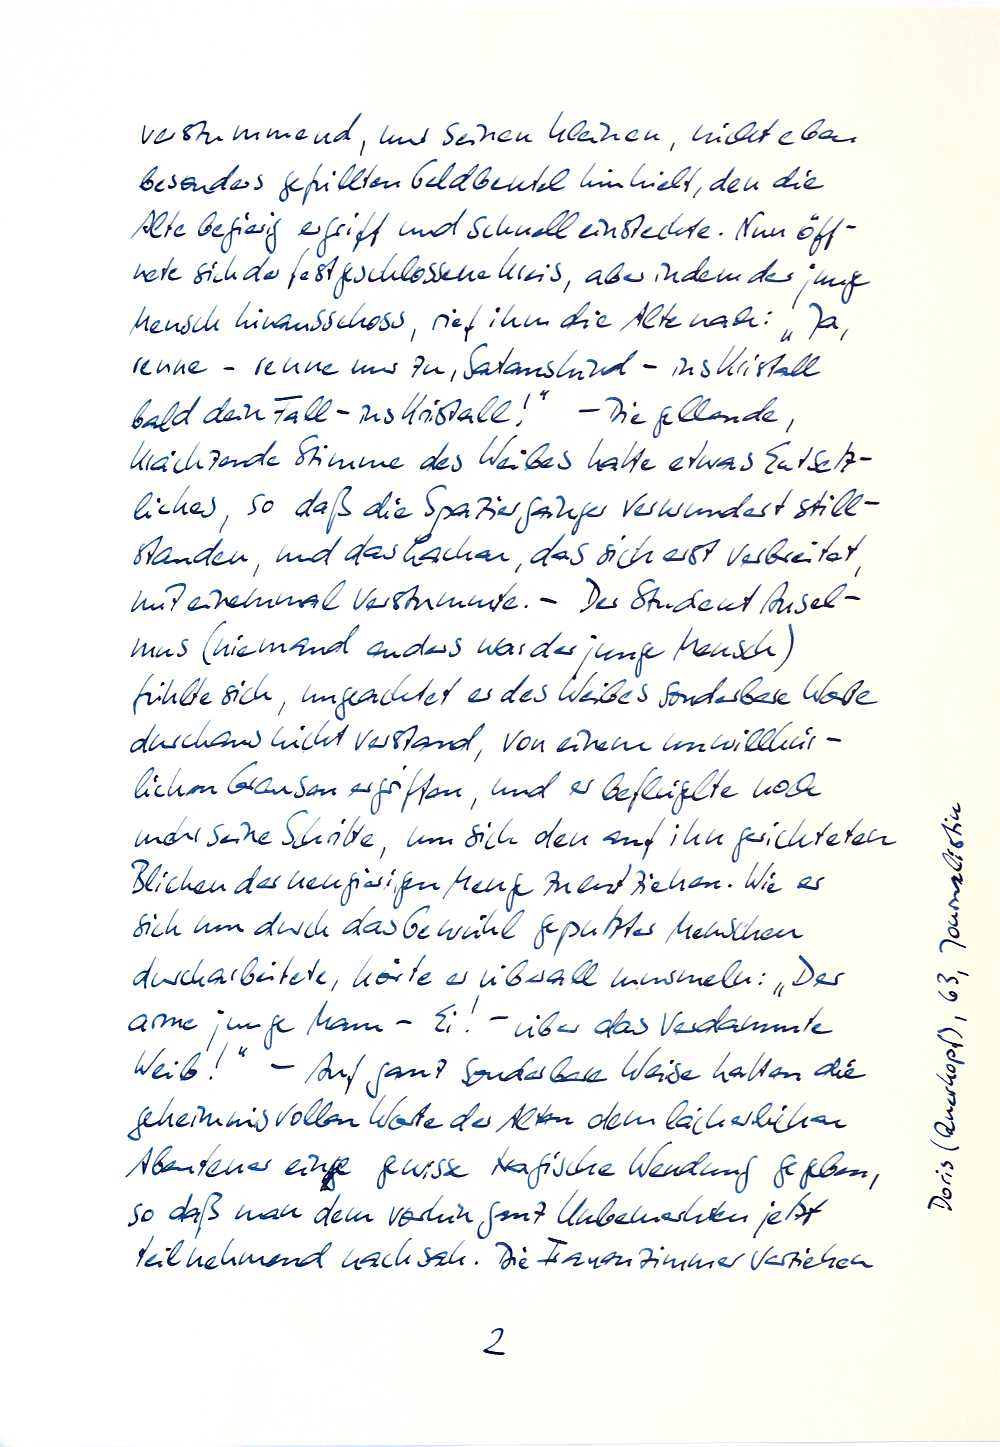 verstummend, nur seinen kleinen, nicht eben
besonders gefüllten Geldbeutel hinhielt, den die
Alte begierig ergriff und schnell einsteckte. Nun öff-
nete sich der festgeschlossene Kreis, aber indem der junge
Mensch hinausschoss, rief ihm die Alte nach: „Ja,
renne - renne nur zu, Satanskind - ins Kristall
bald dein Fall - ins Kristall!“ - Die gellende,
krächzende Stimme des Weibes hatte etwas Entsetz-
liches, so daß die Spaziergänger verwundert still-
standen, und das Lachen, das sich erst verbreitet,
mit einemmal verstummte. - Der Student Ansel-
mus (niemand anders war der junge Mensch)
fühlte sich, ungeachtet er des Weibes sonderbare Worte
durchaus nicht verstand, von einem unwillkür-
lichen Grausen ergriffen, und er beflügelte noch
mehr seine Schritte, um sich den auf ihn gerichteten
Blicken der neugierigen Menge zu entziehen. Wie er
sich nun durch das Gewühl geputzter Menschen
durcharbeitete, hörte er überall murmeln: „Der
arme junge Mann - Ei! - über das verdammte
Weib!“ - Auf ganz sonderbare Weise hatten die
geheimnisvollen Worte der Alten dem lächerlichen
Abenteuer eine gewisse tragische Wendung gegeben,
so daß man dem vorhin ganz Unbemerkten jetzt
teilnehmend nachsah. Die Frauenzimmer verziehen
2
Doris (Querkopf), 63, Journalistin